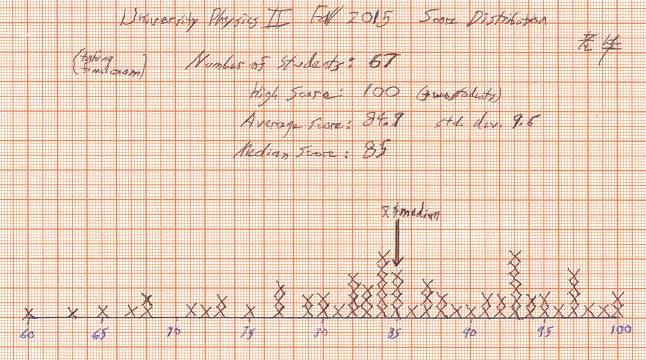 University Physics II Fall 2015 Score Distribution
(taking final exam) Number of Students: 67
High Score: 100 (two students)
Average Score: 84.9 std. dev. 9.5
Median Score: 85
x̄ & median
60 65 70 75 80 85 90 95 100